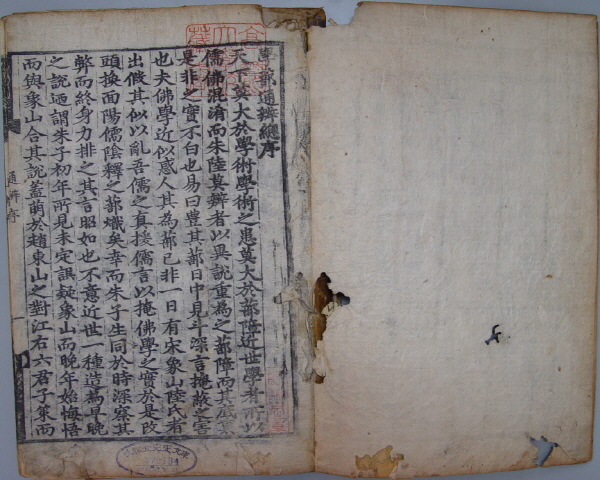 學蔀通辨總序
天下莫大於學術學術之患莫大於蔀障近世學者所以
儒佛混淆而朱陸莫辨者以異說重為之蔀障而其底裏
是非之實不白也易曰豊其蔀日中見斗深言掩蔽之害
也夫佛學近似惑人其為蔀已非一日有宋象山陸氏者
出假其似以亂吾儒之真援儒言以掩佛學之實於是改
頭換面陽儒陰釋之蔀熾矣幸而朱子生同於時深察其
弊而終身力排之其言昭如也不意近世一種造為早晚
之說迺謂朱子初年所見未定誤疑象山而晚年始悔悟
而與象山合其說蓋萌於趙東山之對江右六君子策而
通辨序
一